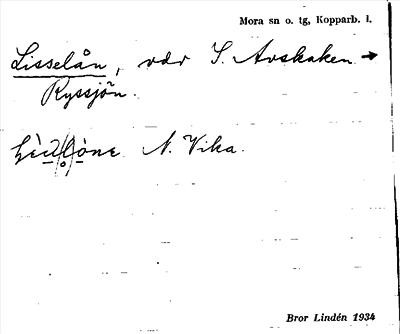 Mora sn o. tg, Kopparb. l.
Lisselån, vdr S. Avskaken →
Ryssjön.
N. Vika.
Bror Lindén 1934